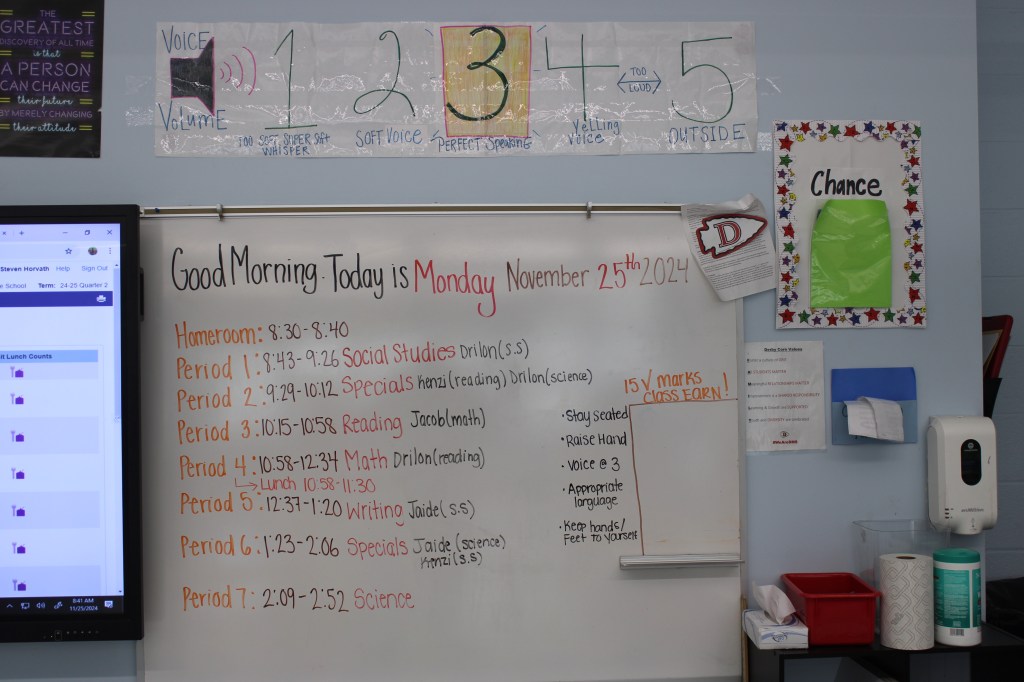 THE
GREATEST
DISCOVERY OF ALL TIME
is that
A PERSON
CAN CHANGE
their future
BY MERELY CHANGING
their attitude
VOICE
VOLUME
1 2 3 4 5
TOO LOUD
TOO SOFT SUPER SOFT
WHISPER
SOFT VOICE
PERFECT Speaking
Yelling
Voice
OUTSIDE
Chance
D
Good Morning. Today is Monday November 25th 2024
Homeroom: 8:30-8:40
Period 1: 8:43-9:26 Social Studies Drilon(s.s)
Period 2: 9:29-10:12 Specials Kenzi(reading) Drilon(science)
Period 3: 10:15-10:58 Reading Jacob(math)
Period 4: 10:58-12:34 Math Drilon(reading)
Lunch 10:58-11:30
Period 5: 12:37-1:20 Writing Jaide(s.s)
Period 6: 1:23-2:06 Specials Jaide (science)
Kenzi(s.s)
Period 7: 2:09-2:52 Science
15 √ marks
class EARN!
• Stay seated
• Raise Hand
• Voice @ 3
• Appropriate
language
• Keep hands/
Feet to yourself
Steven Horvath Help Sign Out
School Term: 24-25 Quarter 2
it Lunch Counts
8:41 AM
11/25/2024